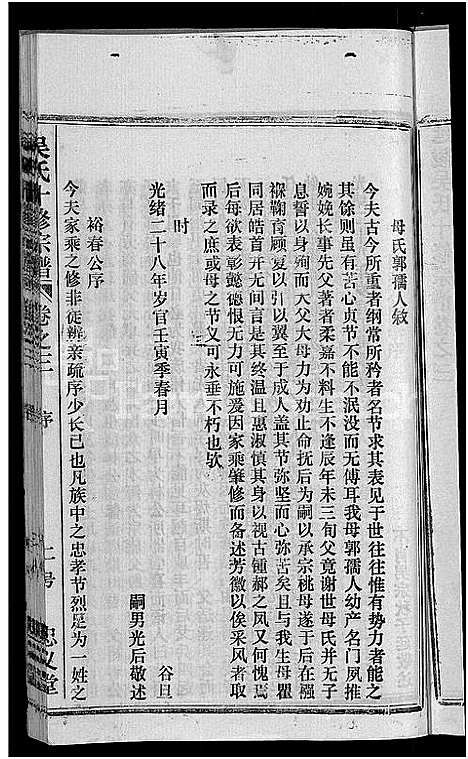 母氏郭孺人叙
今夫古今所重者纲常所矜者名节求其表见于世往往惟有势力者能之
其馀则虽有苦心贞节不能不泯没而无傅耳我母郭孺人幼产名门夙推
婉娩长事先父著者柔嘉不料生不逢辰年未三旬父竟谢世母氏并无子
息誓以身殉而大父大母力为劝止命抚后为嗣以承宗桃母遂于后在襁
褓鞠育顾复以引以翼至于成人盖其节弥坚而心弥苦矣且与我生母瞿
同居皓首并无间言是其终温且惠淑慎其身以视古锺郝之风又何愧焉
后每欲表彰懿德恨无力可施爰因家乘肇修而备述芳徽以俟采风者取
而录之庶或母之节义可永垂不朽也欤
时
光绪二十八年岁官壬寅季春月
谷旦
嗣男光后敬述
裕春公序
今夫家乘之修非徒辨亲疏序少长已也凡族中之忠孝节烈足为一姓之
吴氏十修宗谱
卷之三
序
仁号
忠义堂